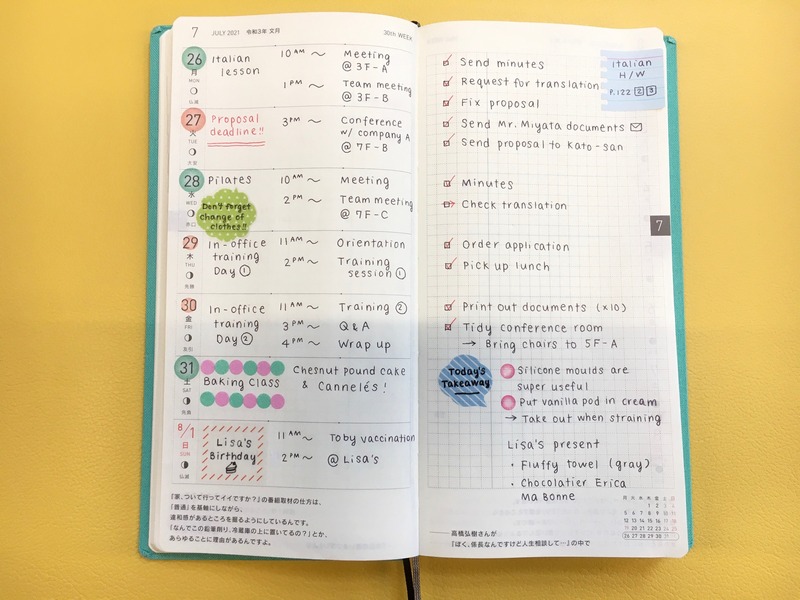 7 JULY 2021 令和3年 文月
30th WEEK
26 月 MON 仏滅
Italian
lesson
10 AM ～ Meeting
@ 3F-A
1 PM ～ Team meeting
@ 3F-B
27 火 TUE 大安
Proposal
deadline!!
3 PM ～ Conference
w/ company A
@ 7F-B
28 水 WED 赤口
Pilates
Don't forget
change of
clothes!!
10 AM ～ Meeting
2 PM ～ Team meeting
@ 7F-C
29 木 THU 先勝
In-office
training
Day ①
11 AM ～ Orientation
2 PM ～ Training
session ①
30 金 FRI 友引
In-office
training
Day ②
11 AM ～ Training ②
3 PM ～ Q & A
4 PM ～ Wrap up
31 土 SAT 先負
Baking Class
Chesnut pound cake
& Cannelés!
8/1 日 SUN 仏滅
Lisa's
Birthday
11 AM ～ Toby vaccination
2 PM ～ @ Lisa's
『家、ついて行ってイイですか？』の番組取材の仕方は、
「普通」を基軸にしながら、
違和感があるところを掘るようにしているんです。
「なんでこの鉛筆削り、冷蔵庫の上に置いてるの？」とか、
あらゆることに理由があるんですよ。
Send minutes
Request for translation
Fix proposal
Send Mr. Miyata documents
Send proposal to Kato-san
Italian
H/W
P.122 2 3
Minutes
Check translation
7
Order application
Pick up lunch
Print out documents (x10)
Tidy conference room
→ Bring chairs to 5F-A
Today's
Takeaway
Silicone moulds are
super useful
Put vanilla pod in cream
→ Take out when straining
Lisa's present
・Fluffy towel (gray)
・Chocolatier Erica
Ma Bonne
月 火 水 木 金 土 日
1 2 3 4
5 6 7 8 9 10 11
12 13 14 15 16 17 18
19 20 21 22 23 24 25
26 27 28 29 30 31
——高橋弘樹さんが
『ぼく、係長なんですけど人生相談して…』の中で